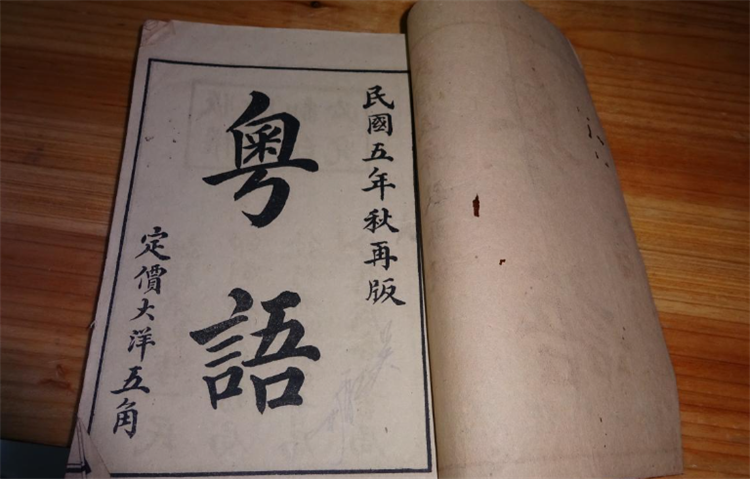 民國五年秋再版
粵語
定價大洋五角